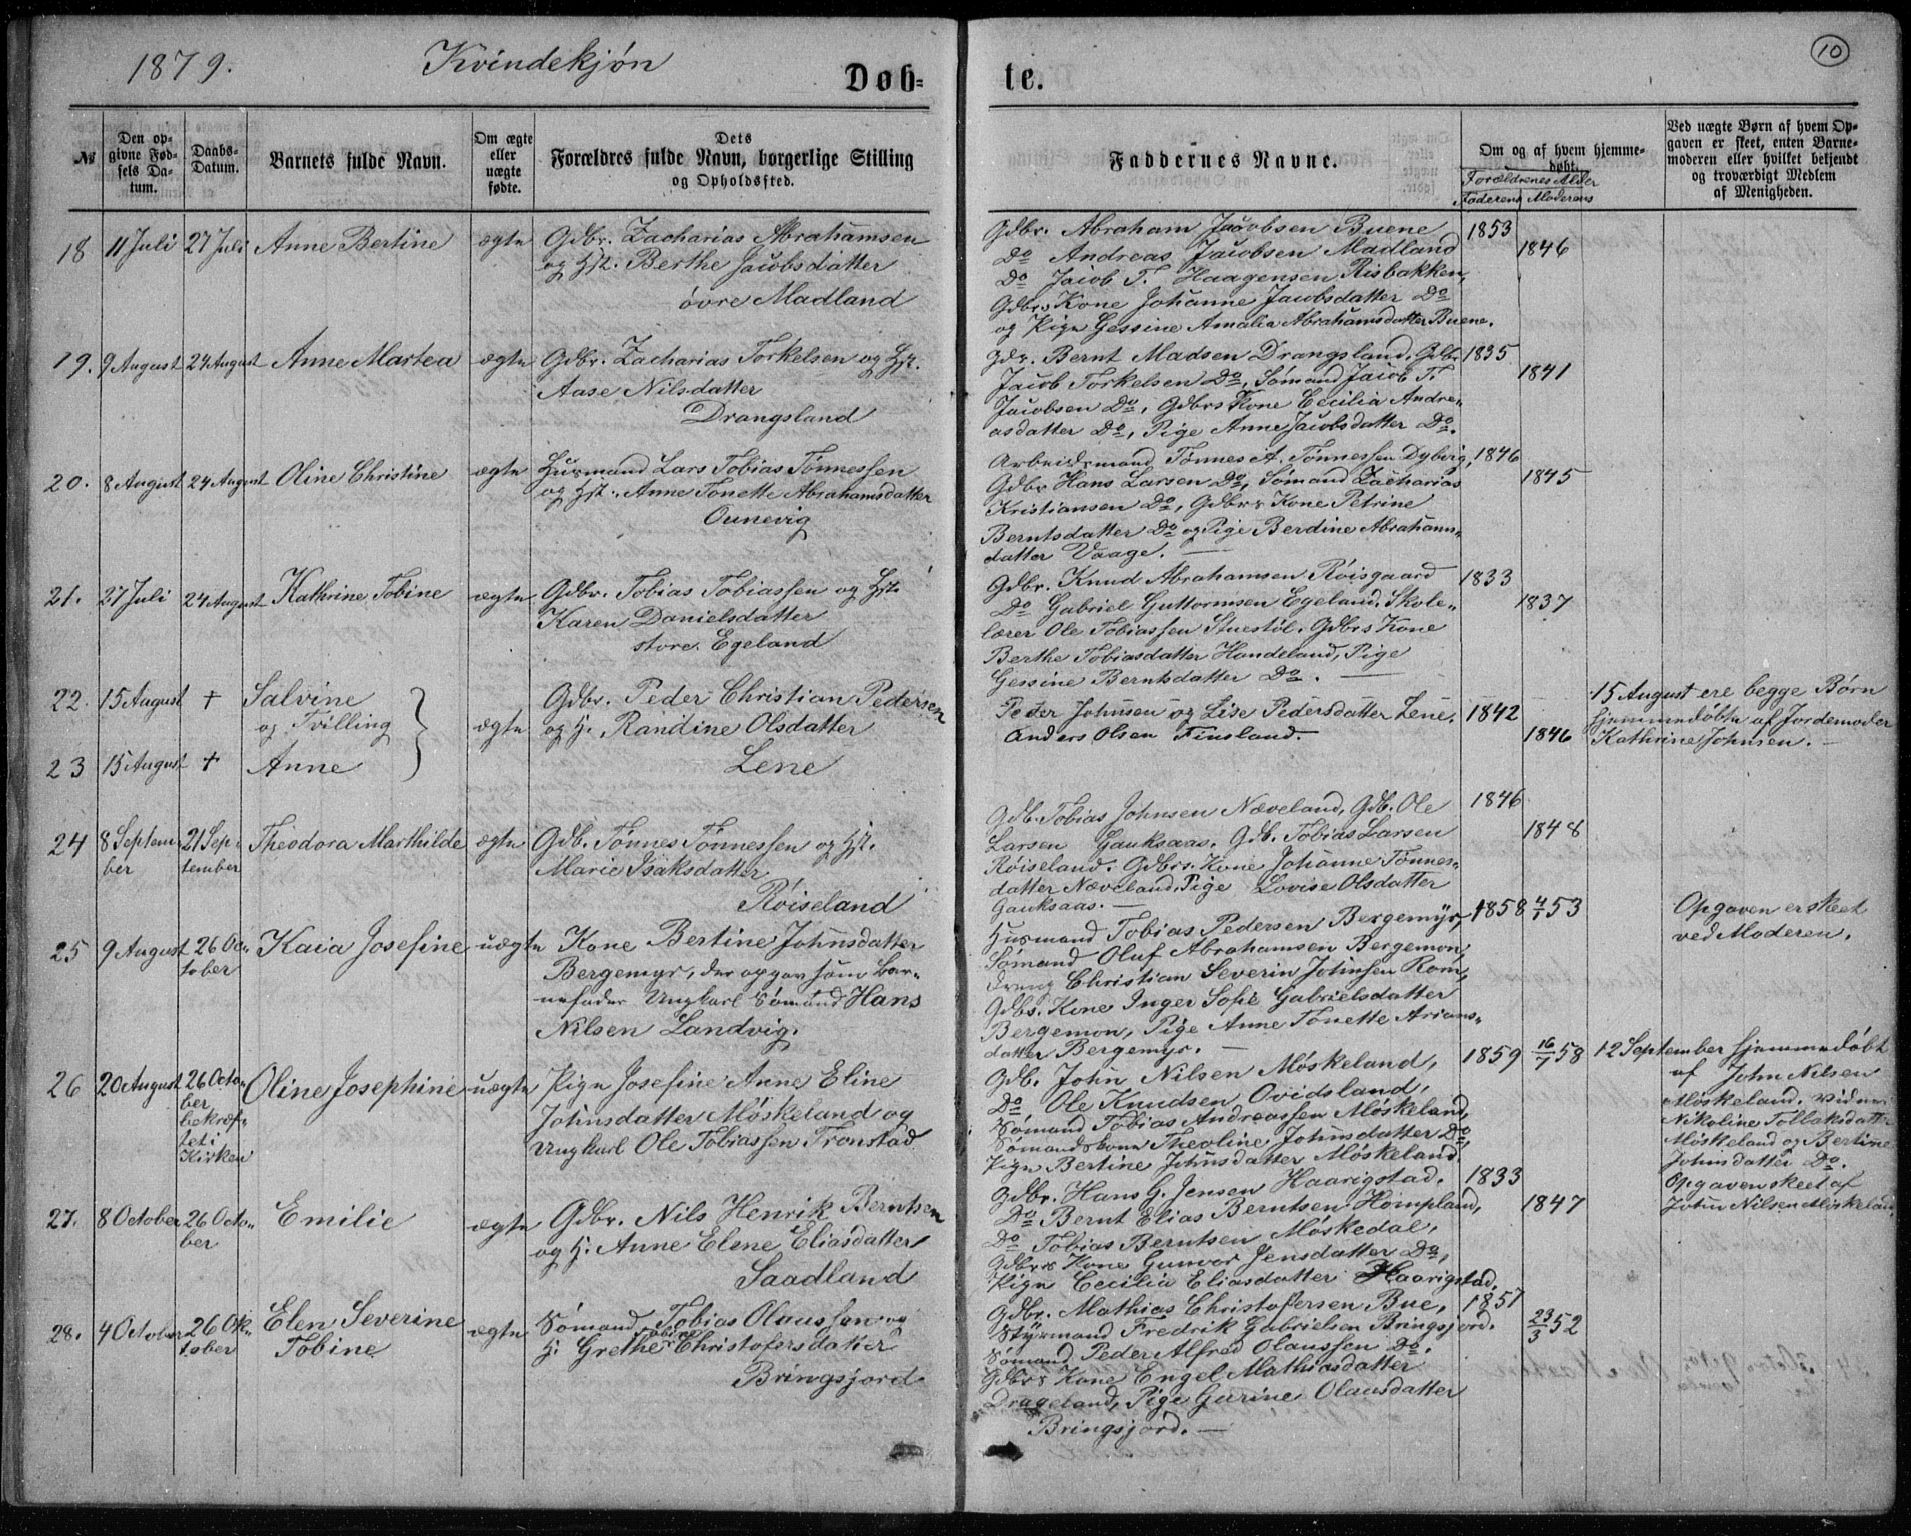 1879.
Kvindekjøn
Døb-
te.
10
№
Den op-
givne Fød-
sels Da-
tum.
Daabs-
Datum.
Barnets fulde Navn.
Om ægte
eller
uægte
fødte.
Dets
Forældres fulde Navn, borgerlige Stilling
og Opholdssted.
Faddernes Navne.
Om og af hvem hjemme-
døbt.
Forældrenes Alder
Faderens Moderens
Ved uægte Børn af hvem Op-
gaven er skeet, enten Barne-
moderen eller hvilket bekjendt
og troværdigt Medlem
af Menigheden.
18 11 Juli 27 Juli Anne Bertine ægte
Gdbr. Zacharias Abrahamsen
og Hst. Berthe Jacobsdatter
övre Madland
Gdbr. Abraham Jacobsen Buene
Do Andreas Jacobsen Madland
Do Jacob T. Haagensen Risbakken,
Gdbrs Kone Johanne Jacobsdatter Do
og Pige Gessine Amalia Abrahamsdatter Buene.
1853
1846
19. 9 August 24 August Anne Martea ægte
Gdbr. Zacharias Torkelsen og Hst.
Aase Nilsdatter
Drangsland
Gdr. Bernt Madsen Drangsland, Gdbr
Jacob Torkelsen Do, Sømand Jacob T.
Jacobsen Do, Gdbrs Kone Cecilia Andre-
asdatter Do, Pige Anne Jacobsdatter Do.
1835
1841
20. 8 August 24 August Oline Christine ægte
Husmand Lars Tobias Tønnessen
og Hst. Anne Tonette Abrahamsdatter
Ounevig
Arbeidsmand Tønnes A. Tønnessen Dybvig,
Gdbr Hans Larsen Do, Sømand Zacharias
Kristiansen Do, Gdbrs Kone Petrine
Berntsdatter Do og Pige Berdine Abrahams-
datter Vaage.
1846
1845
21. 27 Juli 24 August Kathrine Tobine ægte
Gdbr. Tobias Tobiassen og Hst.
Karen Danielsdatter
store Egeland
Gdbr. Knud Abrahamsen Røisgaard
Do Gabriel Guttormsen Egeland, Skole-
lærer Ole Tobiassen Stuestöl, Gdbrs Kone
Berthe Tobiasdatter Handeland, Pige
Gessine Berntsdatter Do.
1833
1837
22. 15 August + Salvine
og Tvilling
ægte
23 15 August + Anne
Gdbr. Peder Christian Pedersen
og H. Randine Olsdatter
Lene
Peder Johnsen og Lise Pedersdatter Lene.
Anders Olsen Finsland.
1842
1846
15 August ere begge Børn
hjemmedøbte af Jordemoder
Kathrine Johnsen.
24 8 Septem-
ber
21 Sep-
tember
Theodora Marthilde ægte
Gdb. Tönnes Tönnessen og Hst.
Marie Isaksdatter
Röiseland
Gdb. Tobias Johnsen Næveland, Gdb. Ole
Larsen Gauksaas. Gdb. Tobias Larsen
Røiseland. Gdbrs. Kone Johanne Tönnes-
datter Næveland, Pige Lovise Olsdatter
Gauksaas.
1846
1848
25 9 August 26 Oc-
tober
Kaia Josefine uægte
Kone Bertine Johnsdatter
Bergemyr, der opgav som Bar-
nefader Ungkarl Sømand Hans
Nilsen Landvig.
Husmand Tobias Pedersen Bergemyr,
Sømand Oluf Abrahamsen Bergemon,
Dreng Christian Severin Johnsen Rom,
Gdbs. Kone Inger Sofie Gabrielsdatter
Bergemon, Pige Anne Tonette Arians-
datter Bergemyr.
1858 4/1 53
Opgaven er skeet
ved Moderen.
26 20 August 26 Octo-
ber
bekræf-
tet i
Kirken
Oline Josephine uægte
Pige Josefine Anne Eline
Johnsdatter Møskeland og
Ungkarl Ole Tobiassen Tronstad
Gdb. John Nilsen Møskeland,
Do Ole Knudsen Ovidsland,
Sømand Tobias Andreassen Möskeland,
Sømandskone Theoline Johnsdatter Do,
Pige Bertine Johnsdatter Møskeland.
1859 16/7 58
12 September hjemmedøbt
af John Nilsen
Møskeland. Vidner
Nikoline Tollaksdatter
Møskeland og Bertine
Johnsdatter Do.
Opgaven skeet af
John Nilsen Møskeland.
27. 8 October 26 Octo-
ber
Emilie ægte
Gdbr. Nils Henrik Berntsen
og H. Anne Elene Eliasdatter
Saadland
Gdbr. Hans G. Jensen Haarigstad.
Do Bernt Elias Berntsen Hompland,
Do Tobias Berntsen Møskedal,
Gdbrs Kone Gunvor Jensdatter Do,
Pige Cecilia Eliasdatter Haarigstad.
1833
1847
28. 4 October 26 Ok-
tober
Elen Severine
Tobine
ægte
Sømand Tobias Olaussen og
H. Grethe Tobine Christofersdatter
Bringsjord
Gdbr. Mathias Christofersen Bue,
Styrmand Fredrik Gabrielsen Bringsjord.
Sømand Peder Alfred Olaussen Do.
Gdbrs Kone Engel Mathiasdatter
Drageland, Pige Gurine Olausdatter
Bringsjord.
1851
23/3 52